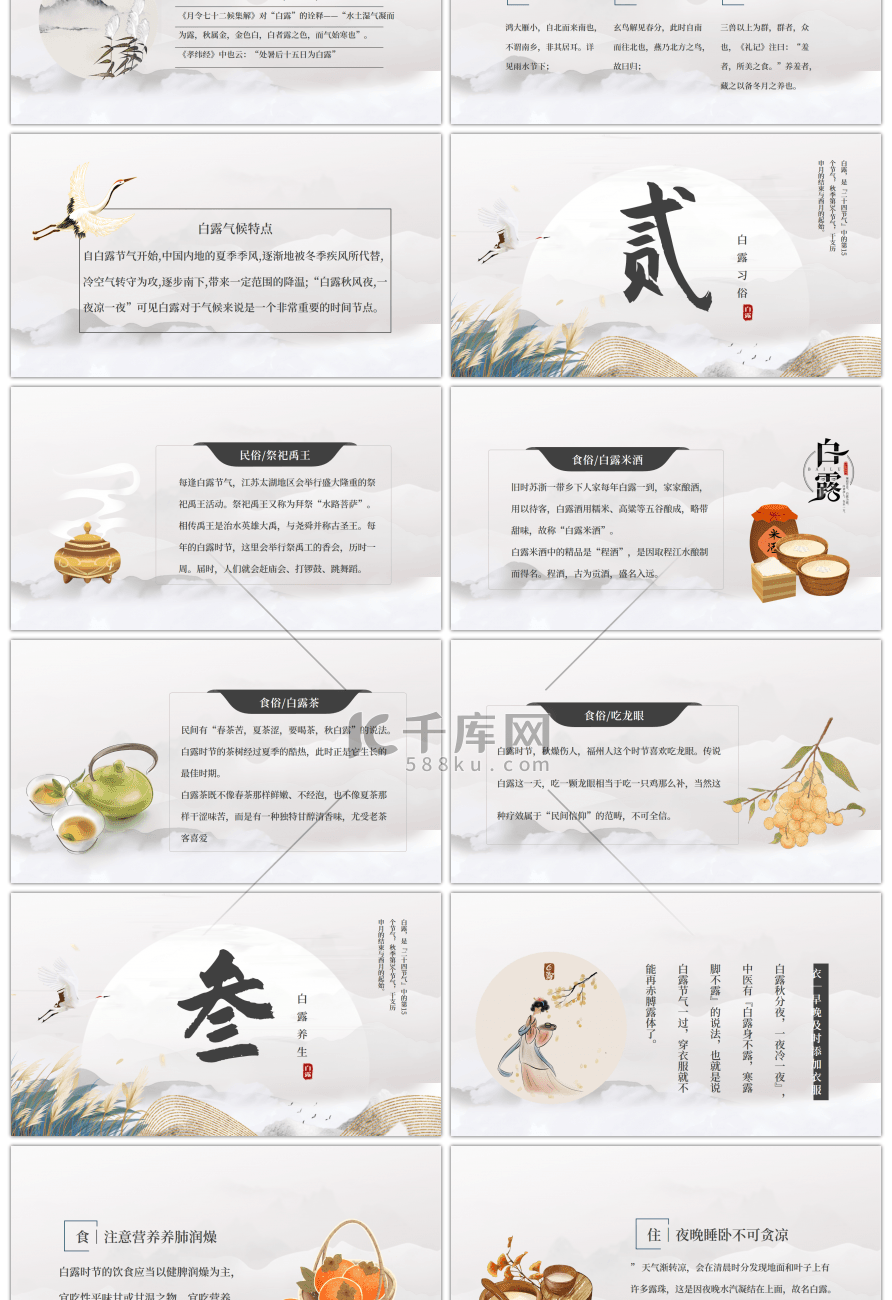 《月令七十二候集解》对“白露”的诠释——“水土湿气凝而
为露，秋属金，金色白，白者露之色，而气始寒也”。
《孝纬经》中也云：“处暑后十五日为白露”
鸿大雁小，自北而来南也，
不谓南乡，非其居耳。详
见雨水节下；
玄鸟解见春分，此时自南
而往北也，燕乃北方之鸟，
故曰归；
三兽以上为群，群者，众
也，《礼记》注曰：“羞
者，所美之食。”养羞者，
藏之以备冬月之养也。
白露气候特点
自白露节气开始,中国内地的夏季季风,逐渐地被冬季疾风所代替,
冷空气转守为攻,逐步南下,带来一定范围的降温;“白露秋风夜,一
夜凉一夜”可见白露对于气候来说是一个非常重要的时间节点。
贰
白露习俗
白露
白露，是『二十四节气』中的第15
个节气，秋季第3个节气，干支历
申月的结束与酉月的起始。
民俗/祭祀禹王
每逢白露节气，江苏太湖地区会举行盛大隆重的祭
祀禹王活动。祭祀禹王又称为拜祭“水路菩萨”。
相传禹王是治水英雄大禹，与尧舜并称古圣王。每
年的白露时节，这里会举行祭禹王的香会，历时一
周。届时，人们就会赶庙会、打锣鼓、跳舞蹈。
食俗/白露米酒
旧时苏浙一带乡下人家每年白露一到，家家酿酒，
用以待客，白露酒用糯米、高粱等五谷酿成，略带
甜味，故称“白露米酒”。
白露米酒中的精品是“程酒”，是因取程江水酿制
而得名。程酒，古为贡酒，盛名入远。
白露
BAILU
米酒
食俗/白露茶
民间有“春茶苦，夏茶涩，要喝茶，秋白露”的说法。
白露时节的茶树经过夏季的酷热，此时正是它生长的
最佳时期。
白露茶既不像春茶那样鲜嫩、不经泡，也不像夏茶那
样干涩味苦，而是有一种独特甘醇清香味，尤受老茶
客喜爱
食俗/吃龙眼
白露时节，秋燥伤人，福州人这个时节喜欢吃龙眼。传说
白露这一天，吃一颗龙眼相当于吃一只鸡那么补，当然这
种疗效属于“民间信仰”的范畴，不可全信。
千库网
588ku.com
叁
白露养生
白露
白露，是『二十四节气』中的第15
个节气，秋季第3个节气，干支历
申月的结束与酉月的起始。
衣|早晚及时添加衣服
白露秋分夜，一夜冷一夜』，
中医有『白露身不露，寒露
脚不露』的说法，也就是说
白露节气一过，穿衣服就不
能再赤膊露体了。
白露
食 注意营养养肺润燥
白露时节的饮食应当以健脾润燥为主，
宜吃性平味甘或甘温之物，宜吃营养
住 夜晚睡卧不可贪凉
”天气渐转凉，会在清晨时分发现地面和叶子上有
许多露珠，这是因夜晚水汽凝结在上面，故名白露。